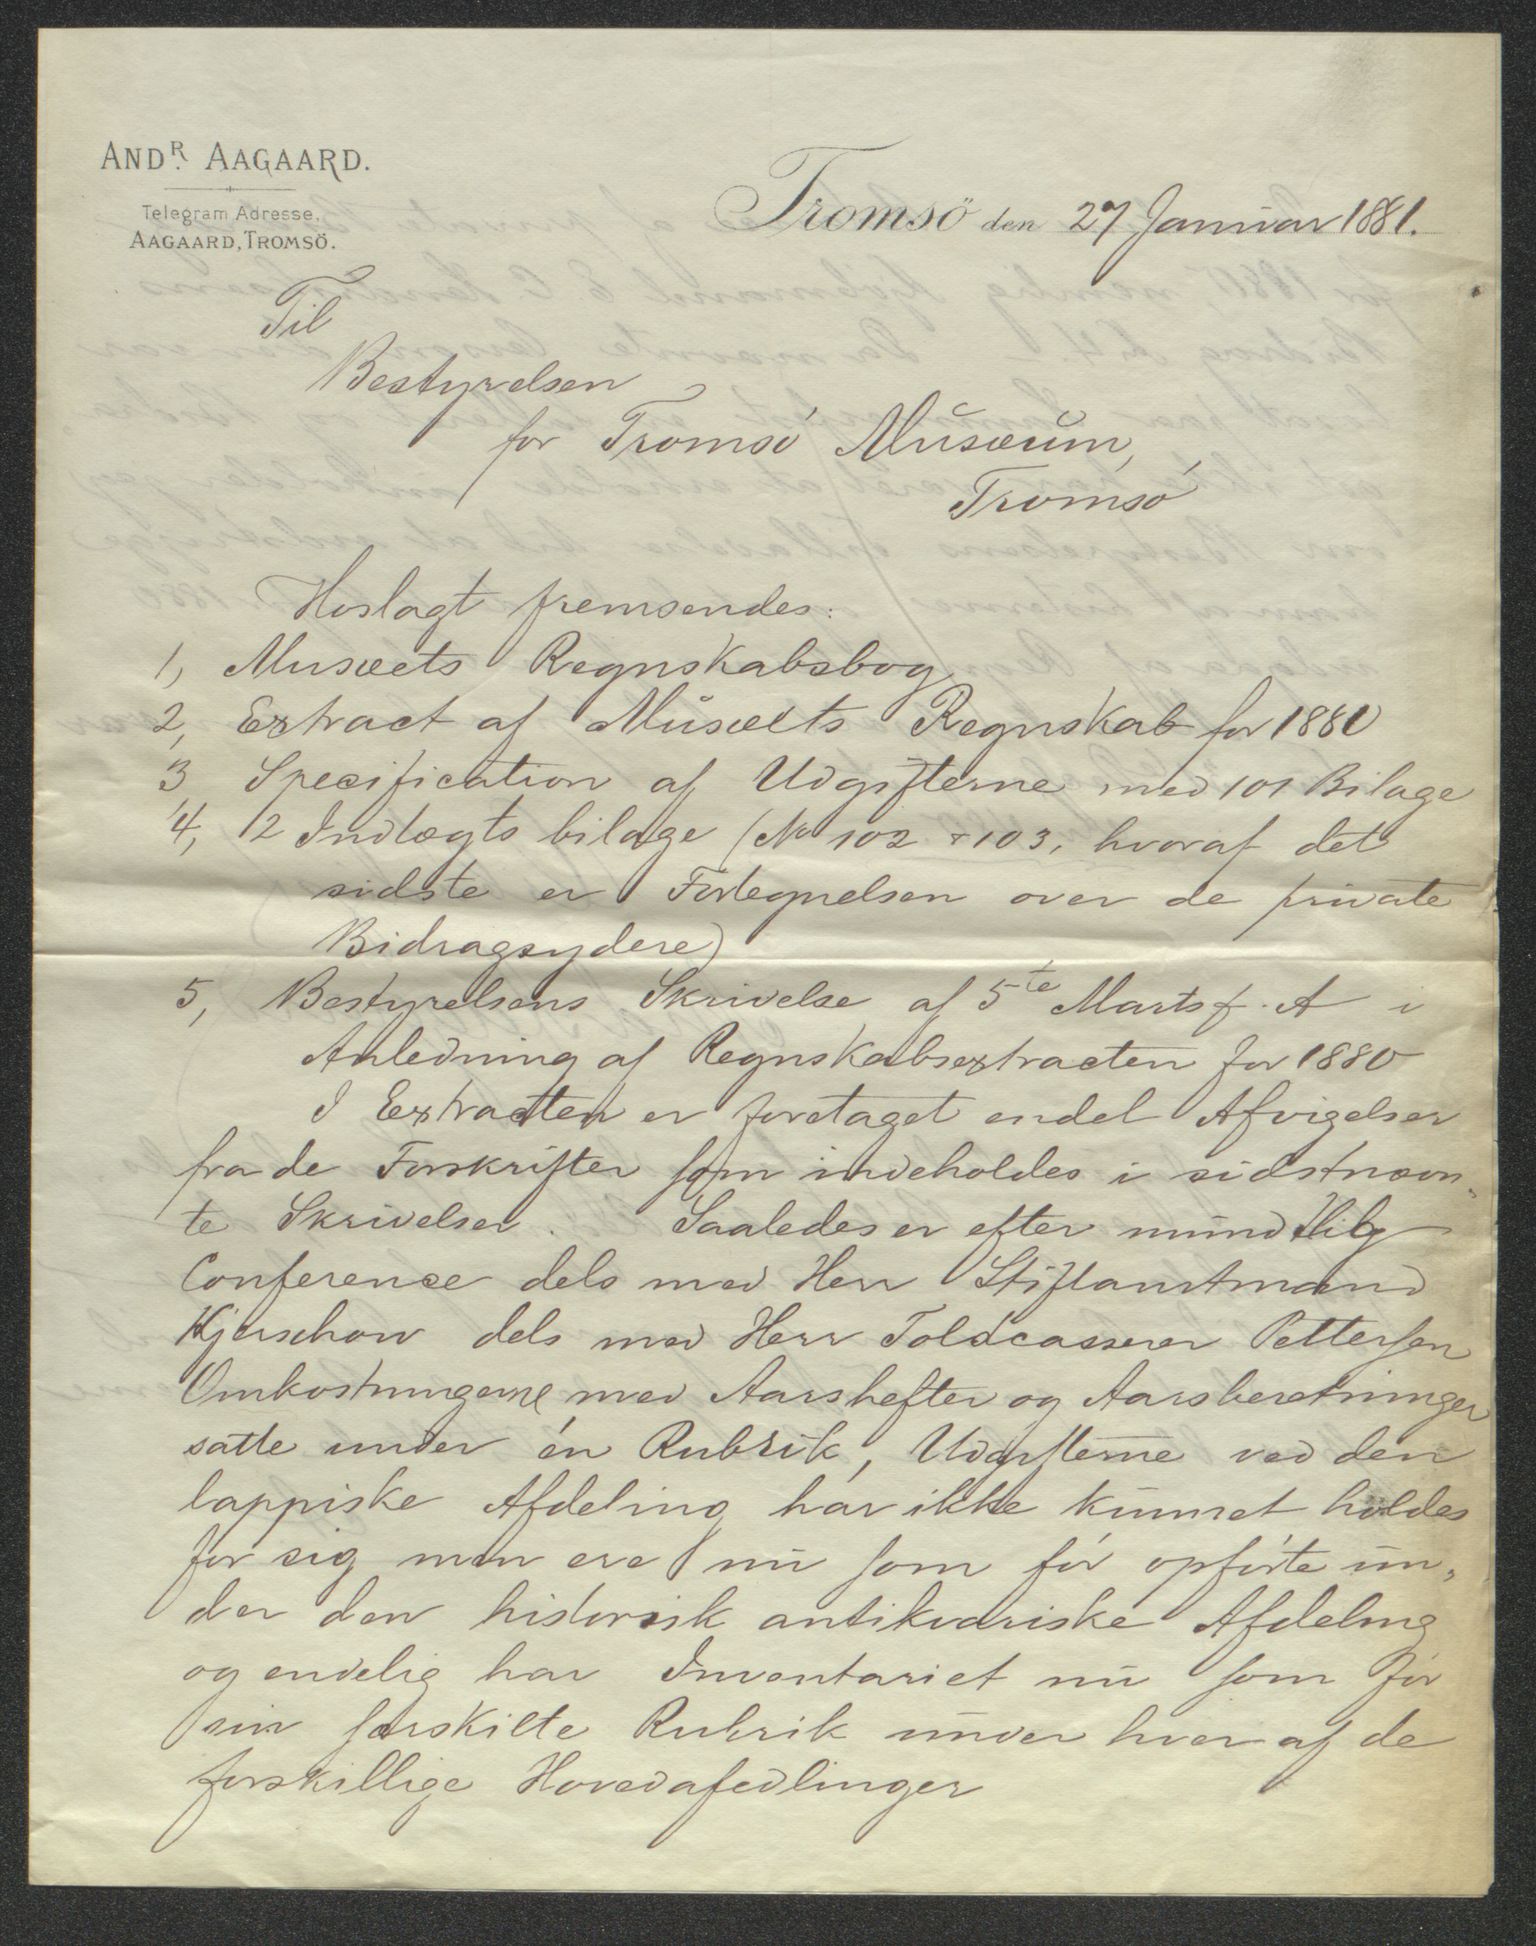 AND.R AAGAARD.
Telegram Adresse,
AAGAARD, TROMSÖ.
Tromsö den 27 Januar 1881.
Til
Bestyrelsen
for Tromsö Musæum,
Tromsö
Hoslagt fremsendes:
1, Musæets Regnskabsbog
2, Extract af Musæets Regnskab for 1880
3 Specification af Udgifterne med 101 Bilage
4, 2 Indtægts bilage (No 102 & 103, hvoraf det
sidste er Fortegnelsen over de private
Bidragsydere)
5, Bestyrelsens Skrivelse af 5te Marts f. A i
Anledning af Regnskabsextracten for 1880
I Extracten er foretaget endel Afvigelser
fra de Forskrifter som indeholdes i sidstnævn-
te Skrivelser. Saaledes er efter mundtlig
Conference dels med Herr Stiftamtmand
Kjerschow dels med Herr Toldcasserer Pettersen
Omkostningerne med Aarshefter og Aarsberetninger
satte under én Rubrik, Udgifterne ved den
lappiske Afdeling har ikke kunnet holdes
for sig men ere nu som för opförte un-
der den historisk antikvariske Afdeling
og endelig har Inventariet nu som för
sin særskilte Rubrik under hver af de
forskillige Hovedafedlinger